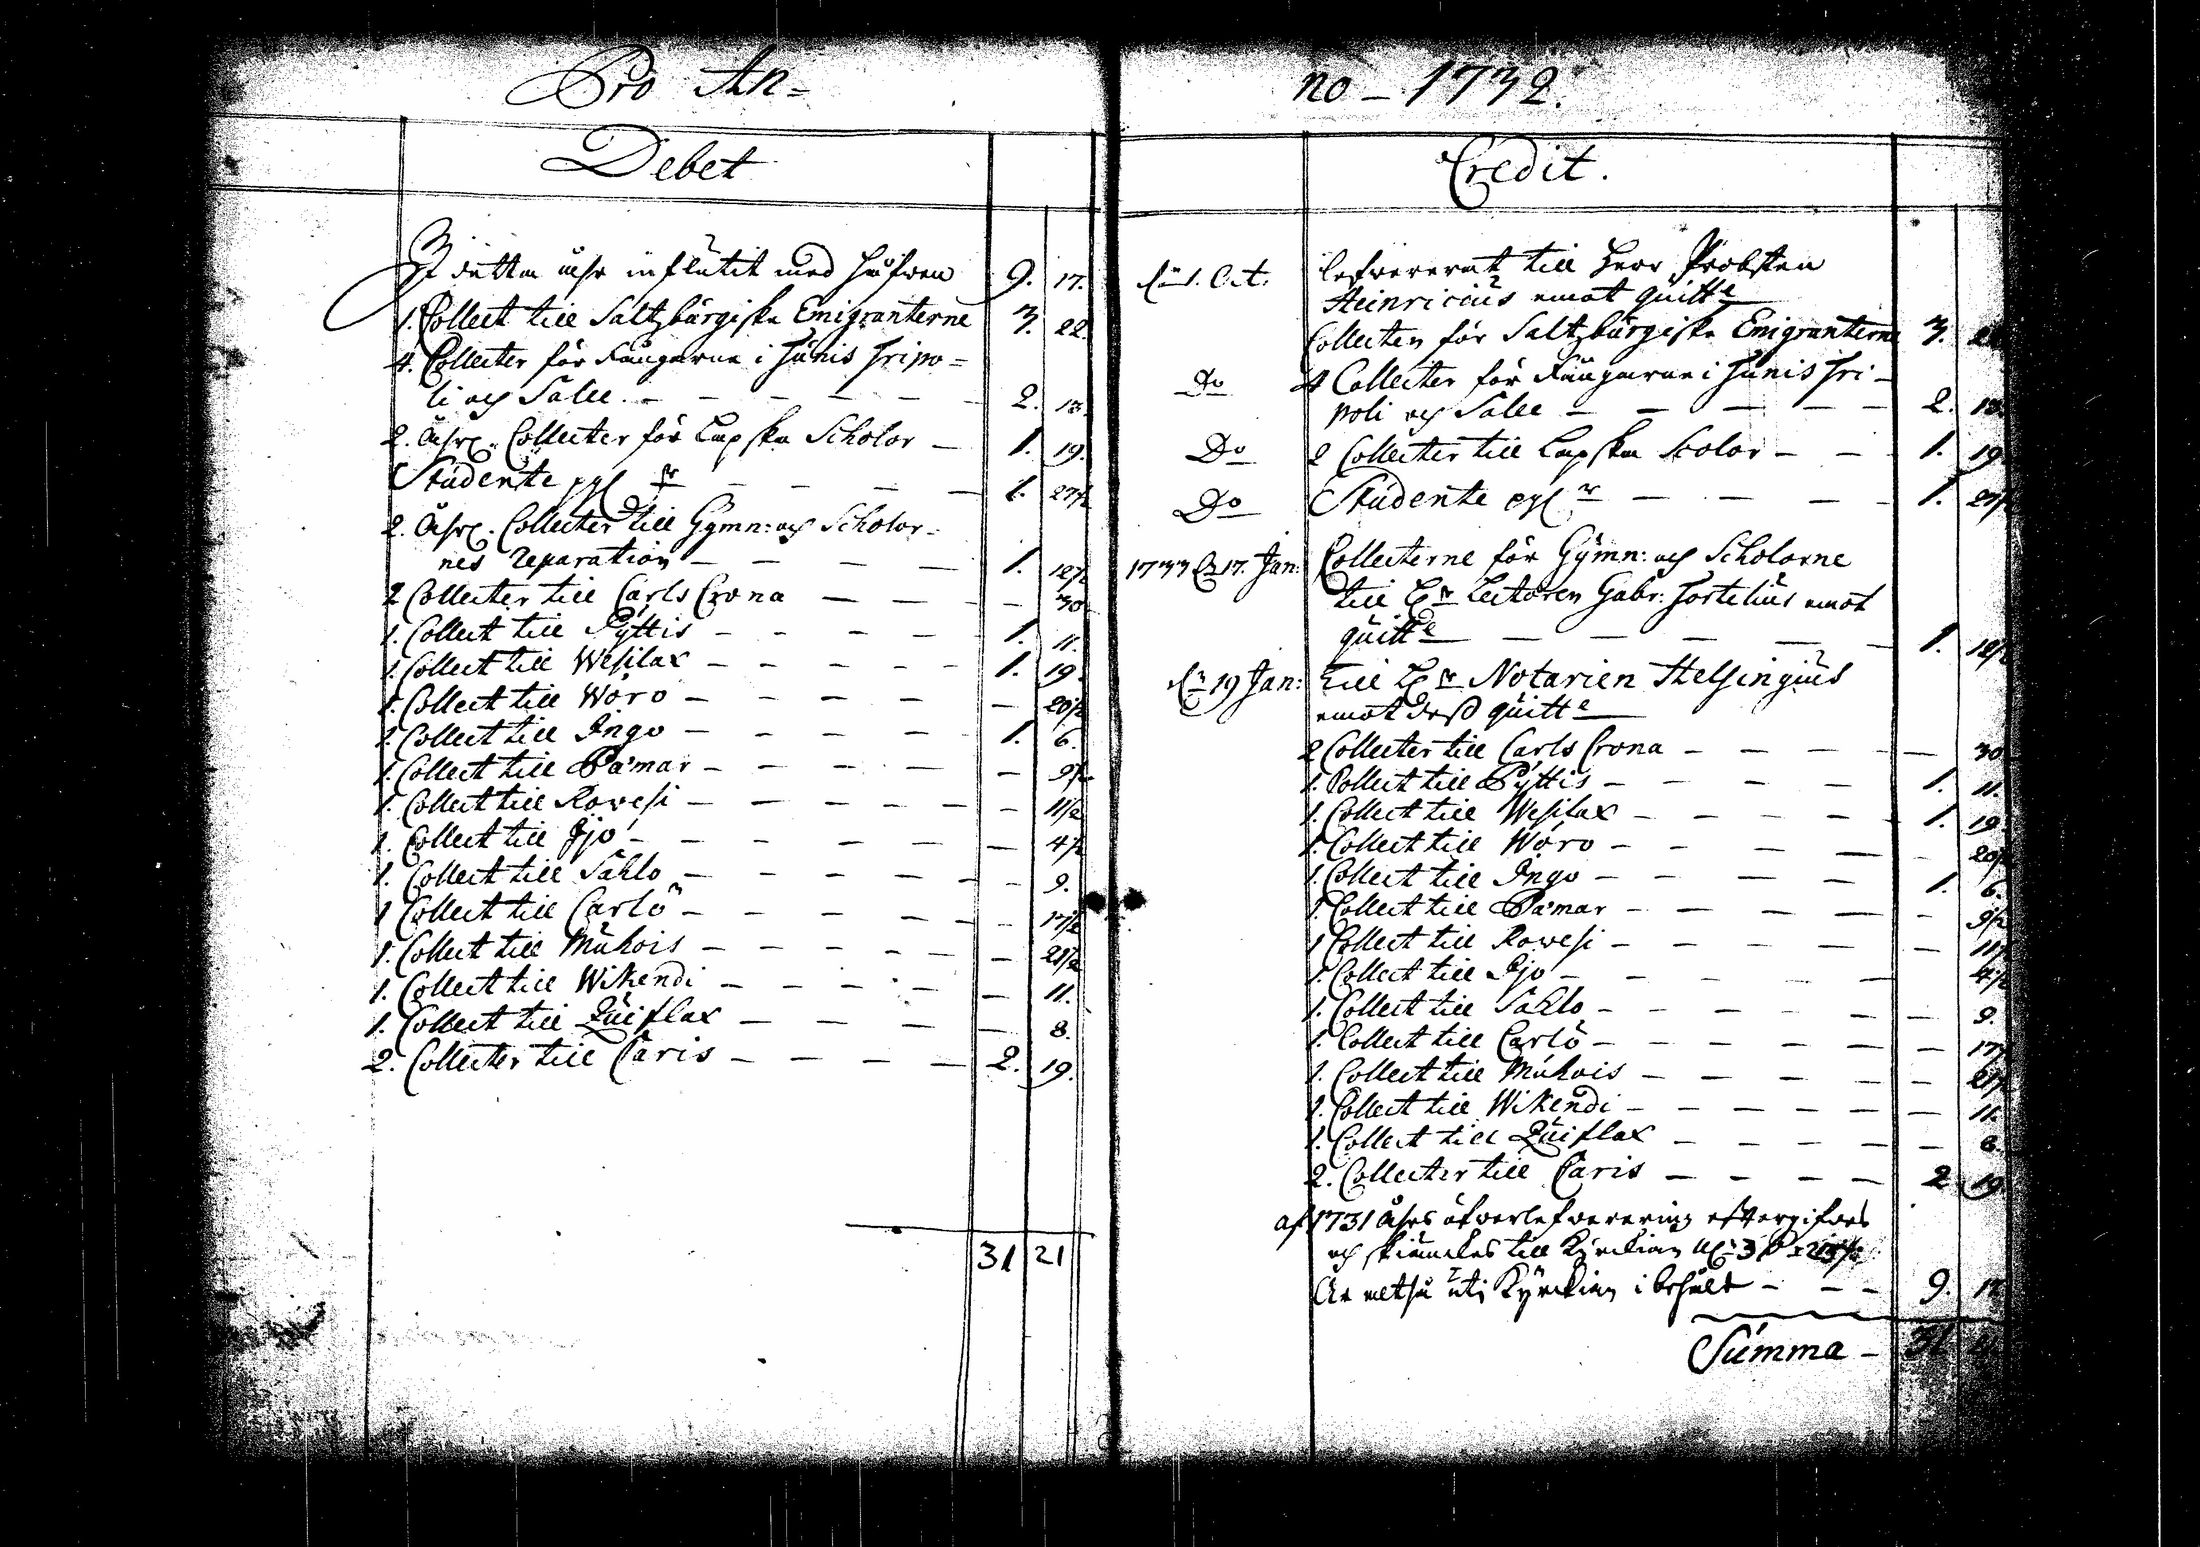 Pro An=
Debet
I detta åhr influtit med håfven 9. 17.
1. Collect till Saltzburgiska Emigranterne 3. 22.
4. Collecter för Fångarne i Tunis Tripo=
li och Salee. — — — — — 2. 13.
2. Åhrl. Collecter för Lapska Scholor — 1. 19.
Studente — — — — 1. 27½
2. Åhrl. Collecter till Gymn: och Scholor=
nes reparation — — — — 1. 12½
2 Collecter till Carls Crona — — — — 30
1. Collect till Pyttis — — — — 1. 11.
1. Collect till Wesilax — — — — 1. 19.
1. Collect till Wöro — — — — — 20½
1. Collect till Ingo — — — — 1. 6.
1. Collect till Pa'mar — — — — — 9½
1. Collect till Rowesi — — — — — 11½
1. Collect till Ijo — — — — — 4½
1. Collect till Sahlo — — — — — 9.
1 Collect till Carlö — — — — — 17½
1. Collect till Muhois — — — — — 21½
1. Collect till Wikendi — — — — — 11.
1. Collect till Quiflax — — — — 8.
2. Collecter till Caris — — — — 2. 19.
31 21
no — 1732.
Credit.
lefvererat till Herr Probsten
Heinricius emot quitt
Collecten för Saltzburgiska Emigranterne 3.
Do 4 Collecter för Fångarne i Tunis Tri—
poli och Salee — — — — — 2. 13.
Do 2 Collecter till Lapska Scolor — — 1. 19.
Do Studente — — — — 1. 27½
1733 17. Jan: Collecterne för Gymn: och Scholorne
till Hr Lectoren Gabr: Fortelius emot
quitt — — — — — 1. 12½
19 Jan: till Hr Notarien Helsingius
emot dess quitt
2 Collecter till Carls Crona — — — — 30
1. Collect till Pyttis — — — — 1. 11.
1. Collect till Wesilax — — — — 1. 19.
1. Collect till Wöro — — — — — 20½
1. Collect till Ingo — — — — 1. 6.
1. Collect till Pa'mar — — — — — 9½
1 Collect till Rowesi — — — — — 11½
1. Collect till Ijo — — — — 4½
1. Collect till Sahlo — — — — — 9.
1. Collect till Carlö — — — — — 17½
1. Collect till Muhois — — — — — 21½
1. Collect till Wikendi — — — — — 11.
1. Collect till Quiflax — — — — — 8.
2. Collecter till Caris — — — — 2 19
af 1731 åhrs öfverlefverering eftergifves
och skiänckes till Kyrckian
Är altså uti Kyrckian i behåld — — — 9. 17
Summa — 31